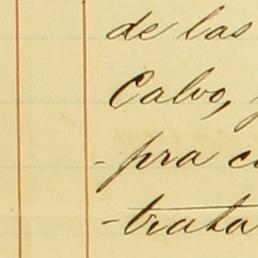 de las
Calvo,
-pra c
-trata